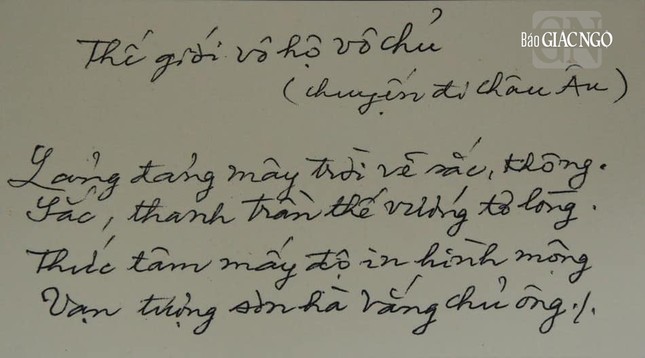 Báo GIÁC NGỘ
Thế giới vô hộ vô chủ
(chuyến đi châu Âu)
Lảng đảng mây trời về sắc, không.
Sắc, thanh trần thế vướng tơ lòng.
Thức tâm mấy độ in hình mộng
Vạn tượng sơn hà vắng chủ ông./.